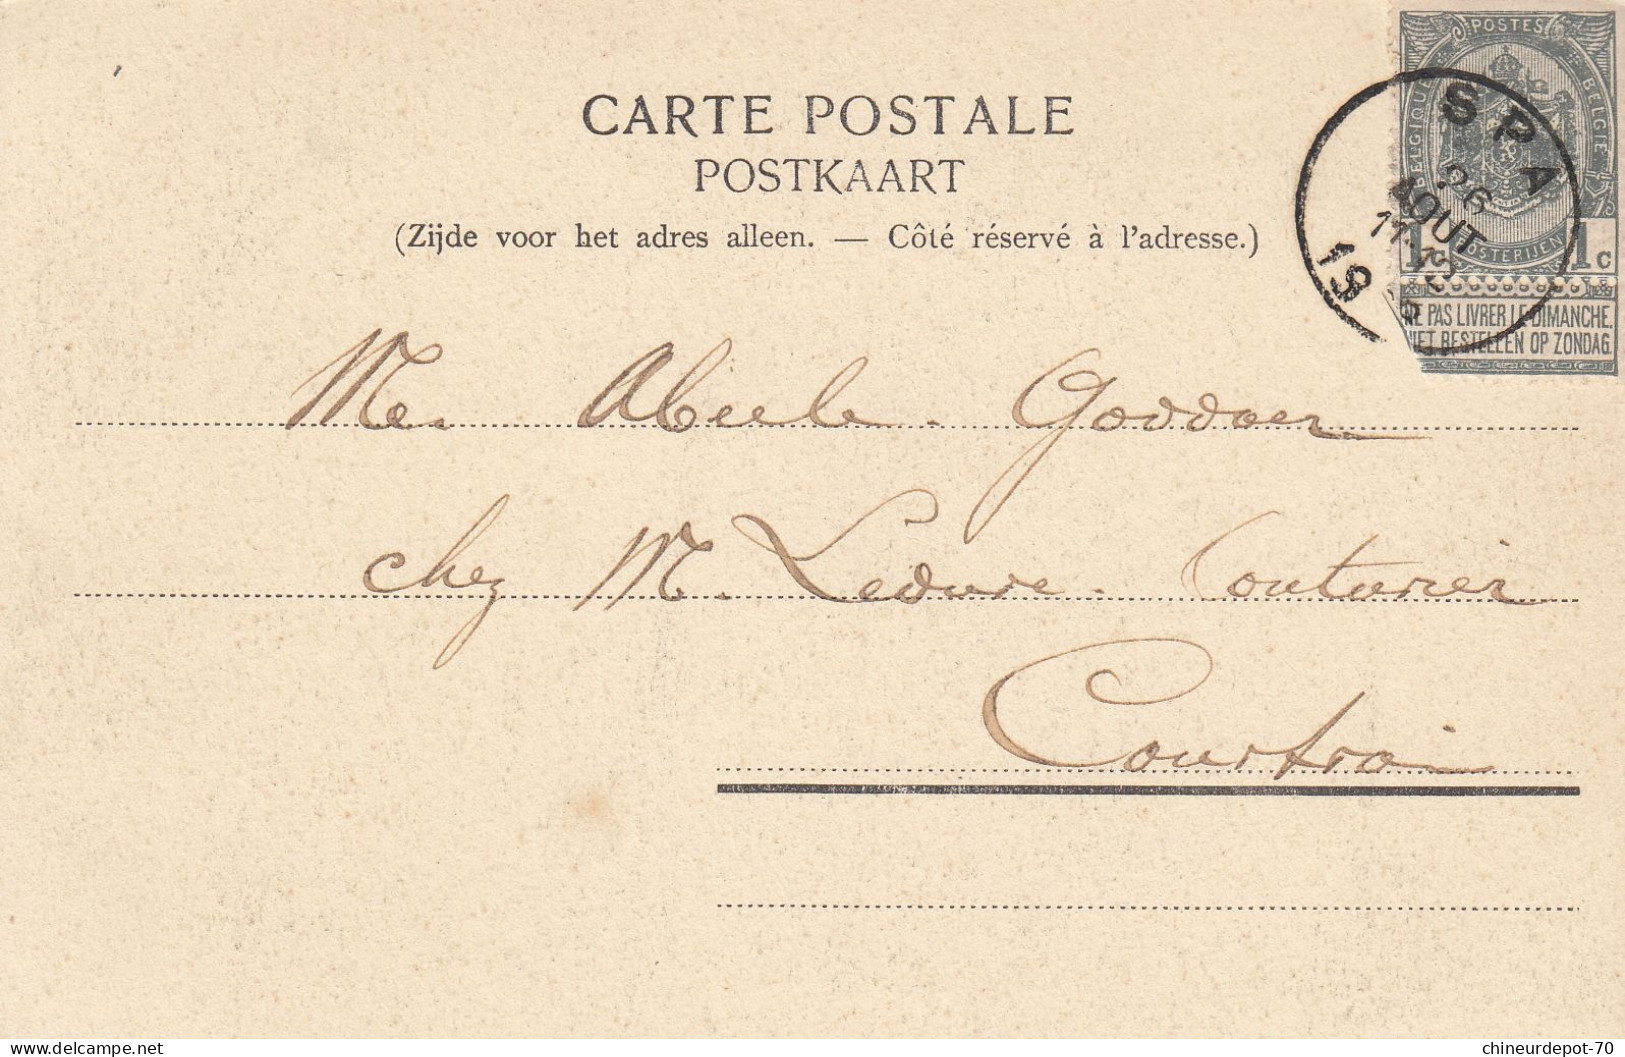 CARTE POSTALE
POSTKAART
(Zijde voor het adres alleen. — Côté réservé à l'adresse.)
POSTES
BELGIQUE BELGIE
POSTERIJEN
1 1c
NE PAS LIVRER LE DIMANCHE,
NIET BESTELLEN OP ZONDAG.
SPA
26
AOUT
19
Me.
chez M. Couturier
Courtrai
www.delcampe.net
chineurdepot-70